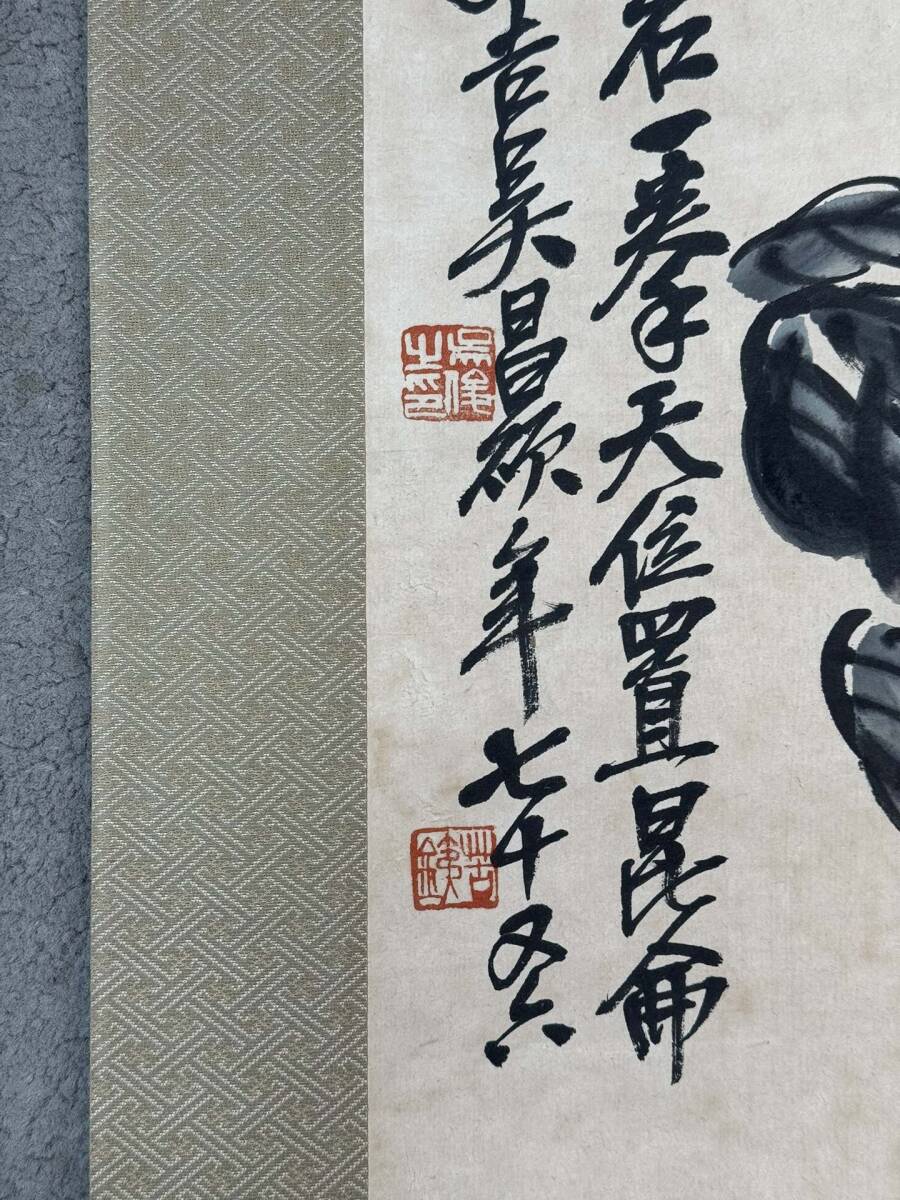 石一拳天位置昆侖
吉吳昌碩年七十又六
吳俊之印
苦鐵